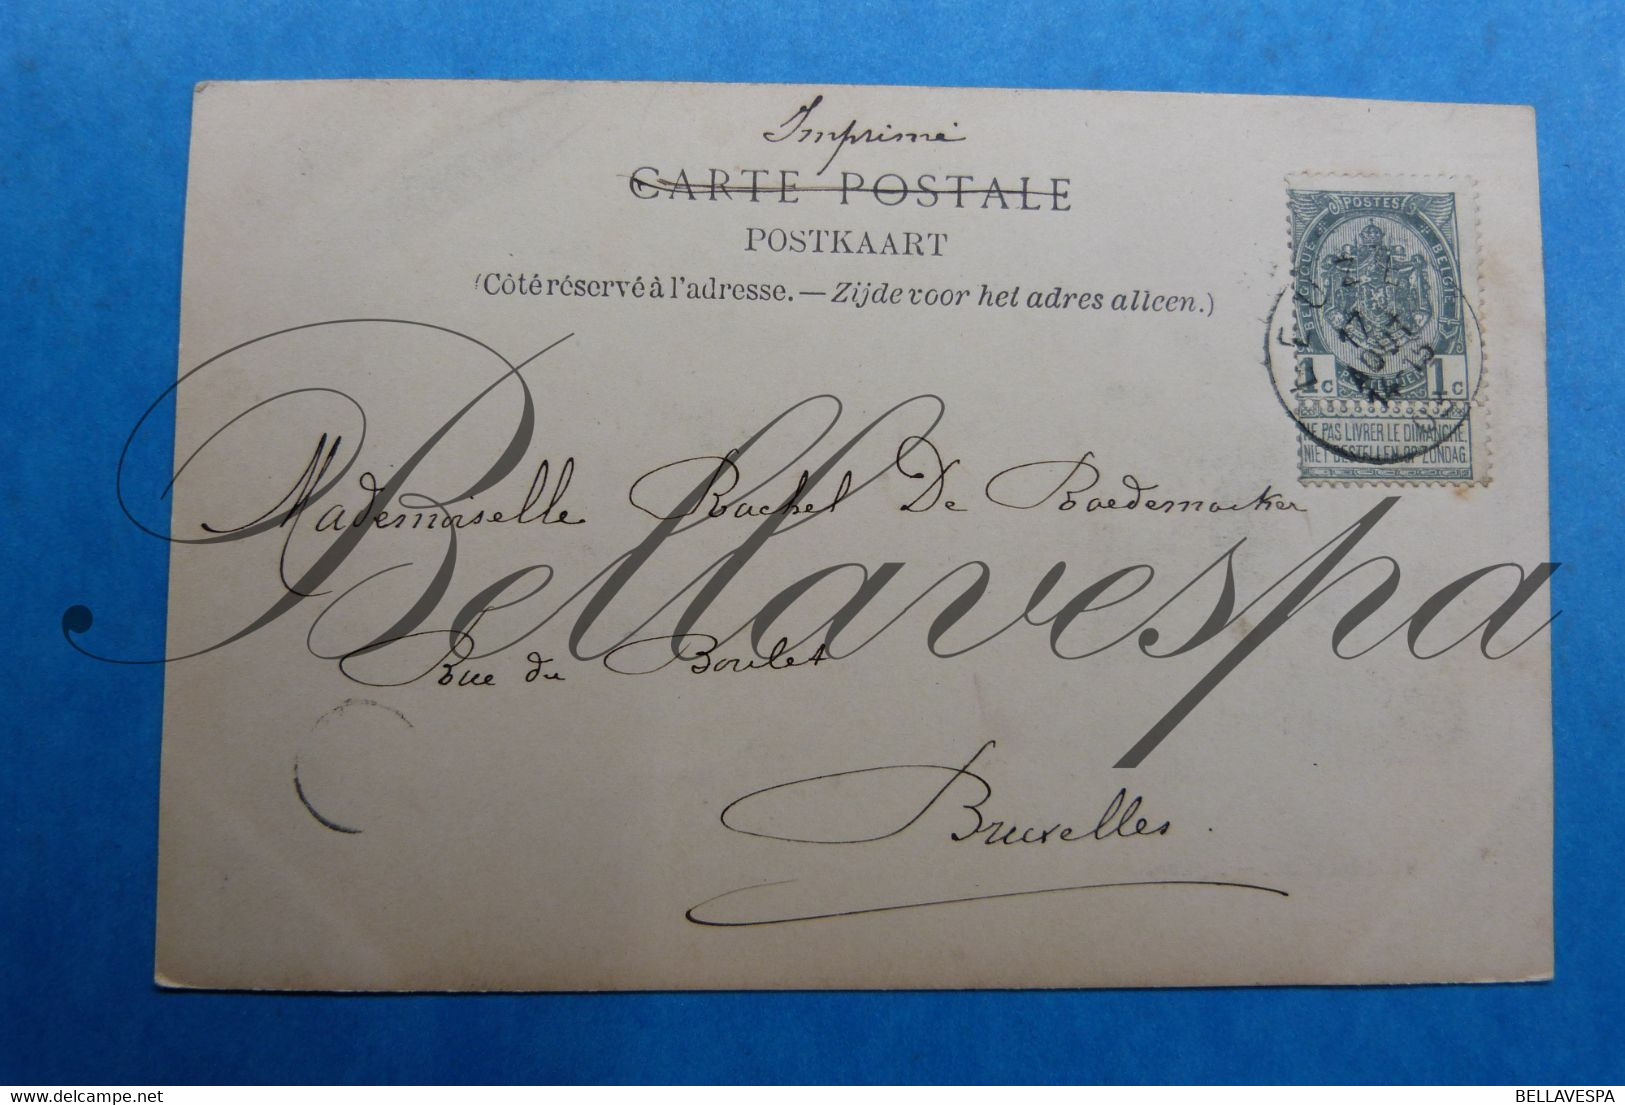 Imprimé
CARTE POSTALE
POSTKAART
(Côté réservé à l'adresse. — Zijde voor het adres alleen.)
POSTES
BELGIQUE BELGIË
17
AOUT
1c 1c
NE PAS LIVRER LE DIMANCHE.
NIET BESTELLEN OP ZONDAG
Mademoiselle Rachel De Raedemaeker
Bellavespa
Rue du Boulet
Bruxelles.
delcampe.net
BELLAVESPA